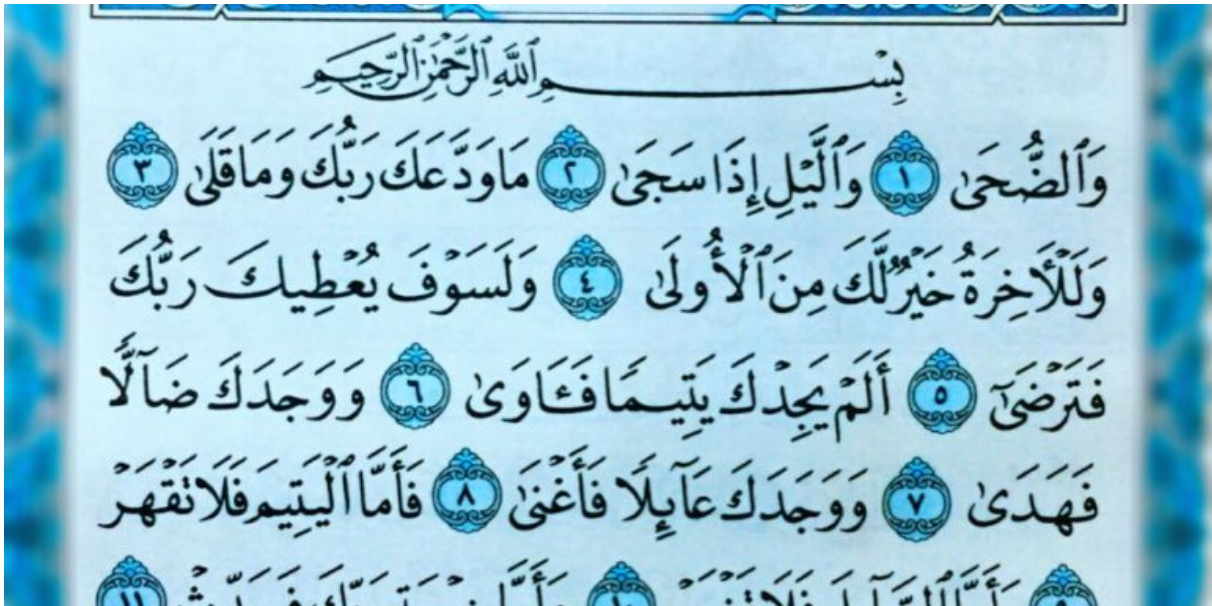 بِسْمِ ٱللَّهِ ٱلرَّحْمَٰنِ ٱلرَّحِيمِ
وَٱلضُّحَىٰ ١ وَٱلَّيْلِ إِذَا سَجَىٰ ٢ مَا وَدَّعَكَ رَبُّكَ وَمَا قَلَىٰ ٣
وَلَلْأَخِرَةُ خَيْرٌ لَّكَ مِنَ ٱلْأُولَىٰ ٤ وَلَسَوْفَ يُعْطِيكَ رَبُّكَ
فَتَرْضَىٰٓ ٥ أَلَمْ يَجِدْكَ يَتِيمًا فَـَٔاوَىٰ ٦ وَوَجَدَكَ ضَآلًّا
فَهَدَىٰ ٧ وَوَجَدَكَ عَآئِلًا فَأَغْنَىٰ ٨ فَأَمَّا ٱلْيَتِيمَ فَلَا تَقْهَرْ